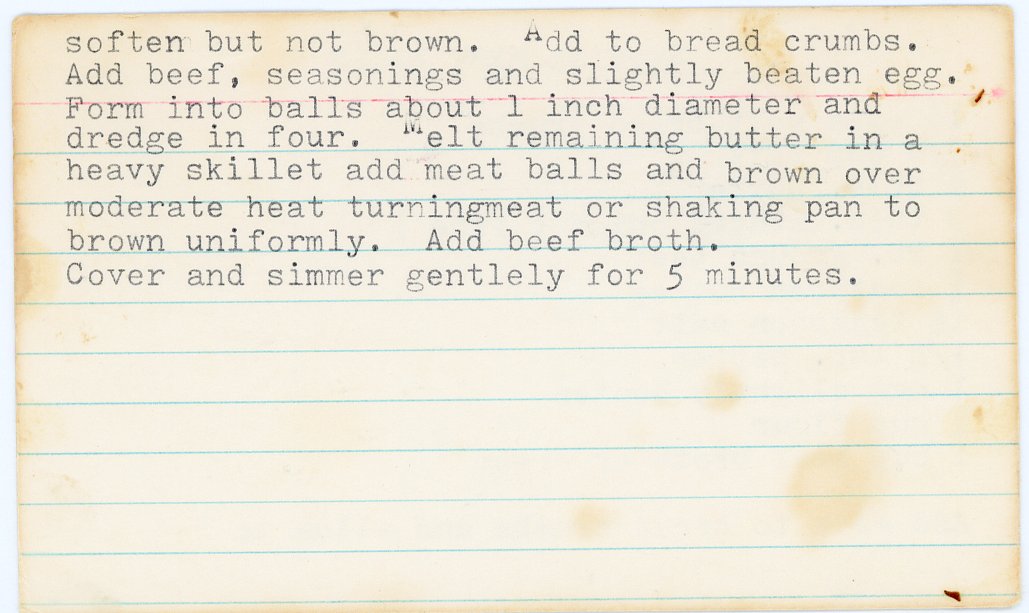 soften but not brown. Add to bread crumbs.
Add beef, seasonings and slightly beaten egg.
Form into balls about 1 inch diameter and
dredge in four. Melt remaining butter in a
heavy skillet add meat balls and brown over
moderate heat turningmeat or shaking pan to
brown uniformly. Add beef broth.
Cover and simmer gentlely for 5 minutes.